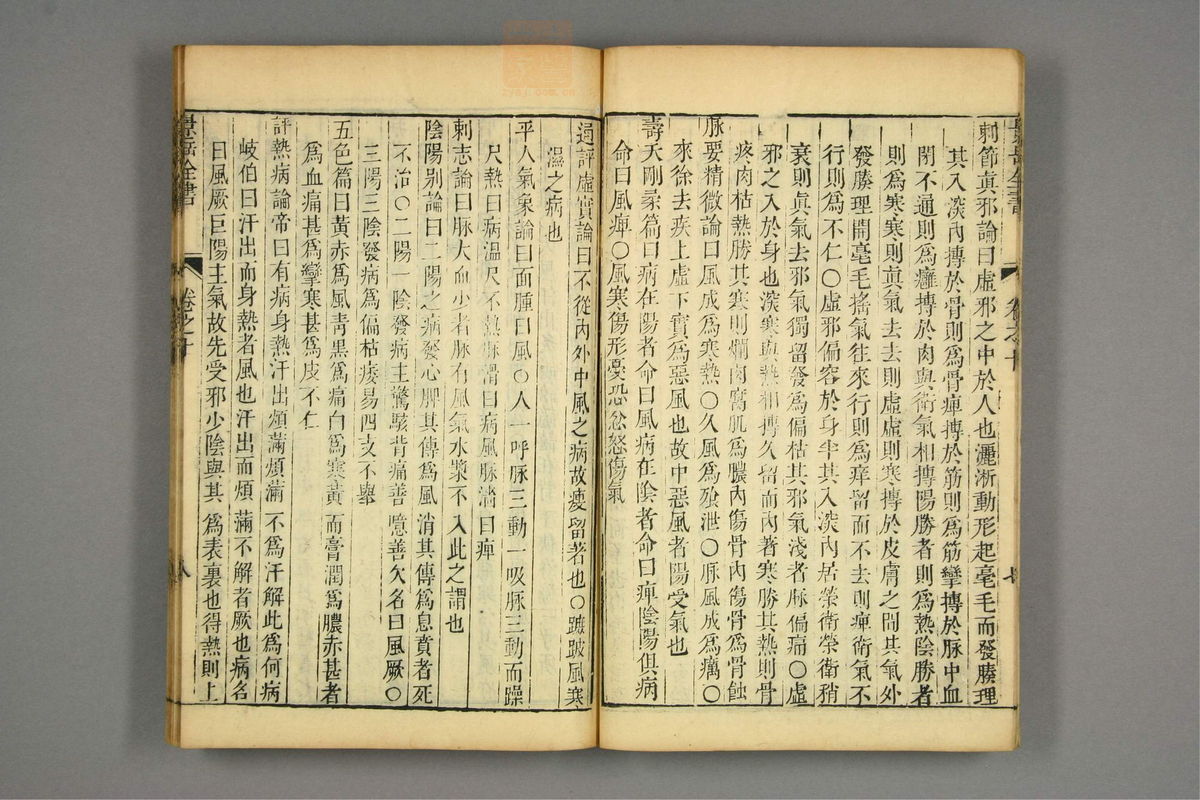 刺節真邪論曰虛邪之中於人也灑淅動形起毫毛而發腠理
其入深內搏於骨則爲骨痺搏於筋則爲筋攣搏於脉中血
閉不通則爲癰搏於肉與衛氣相搏陽勝者則爲熱陰勝者
則爲寒寒則眞氣去去則虛虛則寒搏於皮膚之間其氣外
發腠理開毫毛搖氣往來行則爲痒留而不去則痺衛氣不
行則爲不仁○虛邪偏容於身半其入深內居榮衛榮衛稍
衰則眞氣去邪氣獨留發爲偏枯其邪氣淺者脉偏痛○虛
邪之入於身也深寒與熱相搏久留而內著寒勝其熱則骨
疼肉枯熱勝其寒則爛肉腐肌爲膿內傷骨內傷骨爲骨蝕
脉要精微論曰風成爲寒熱○久風爲飱泄○脉風成爲癘○
來徐去疾上虛下實爲惡風也故中惡風者陽受氣也
壽夭剛柔篇曰病在陽者命曰風病在陰者命曰痺陰陽俱病
命曰風痺○風寒傷形憂恐忿怒傷氣
景岳全書
卷之十
七
通評虛實論曰不從內外中風之病故瘦留著也○蹠跛風寒
濕之病也
平人氣象論曰面腫曰風○人一呼脉三動一吸脉三動而躁
尺熱曰病温尺不熱脉滑曰病風脉濇曰痺
刺志論曰脉大血少者脉有風氣水漿不入此之謂也
陰陽别論曰二陽之病發心脾其傳爲風消其傳爲息賁者死
不治○二陽一陰發病主驚駭背痛善噫善欠名曰風厥○
三陽三陰發病爲偏枯痿易四支不舉
五色篇曰黃赤爲風青黑爲痛白爲寒黃而膏潤爲膿赤甚者
爲血痛甚爲攣寒甚爲皮不仁
評熱病論帝曰有病身熱汗出煩滿煩滿不爲汗解此爲何病
岐伯曰汗出而身熱者風也汗出而煩滿不解者厥也病名
曰風厥巨陽主氣故先受邪少陰與其爲表裏也得熱則上
景岳全書
卷之十
八